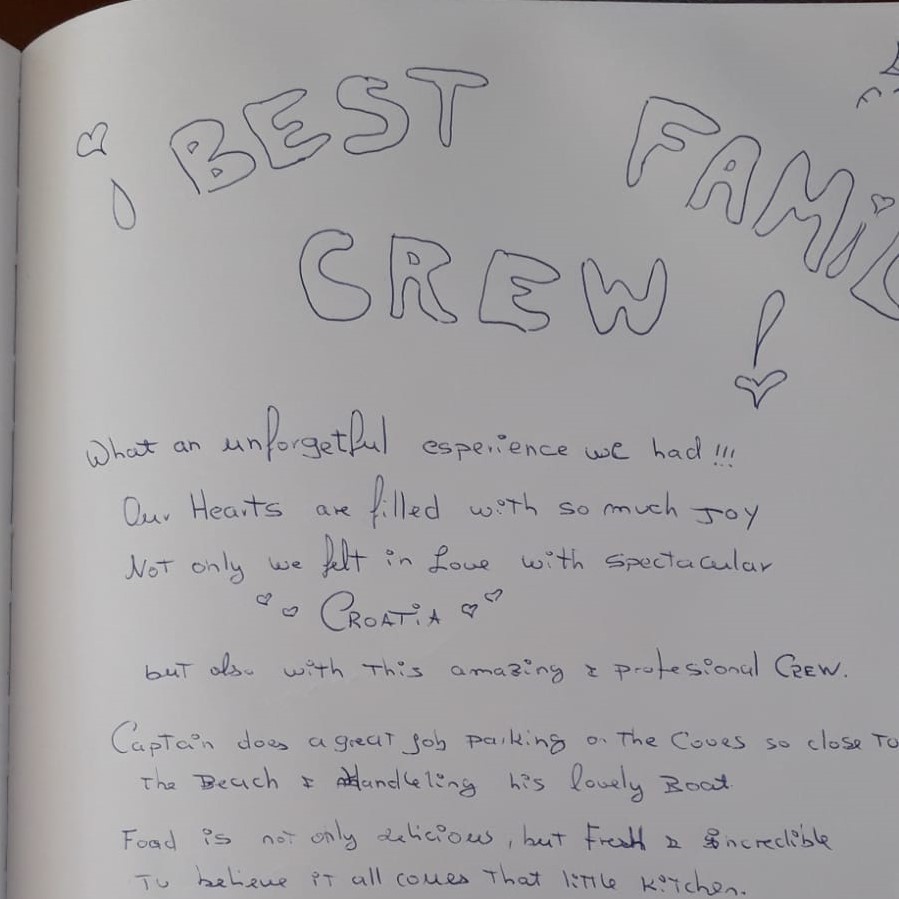 ¡ BEST FAMIL
CREW !
What an unforgetful esperience we had !!!
Our Hearts are filled with so much Joy
Not only we felt in Love with spectacular
CROATiA
but also with This amazing & profesional CREW.
Captain does a great Job parking on The Coves so close To
The Beach & Handleling his lovely Boat
Food is not only delicious, but Fresh & incredible
To believe iT all comes That little KiTchen.